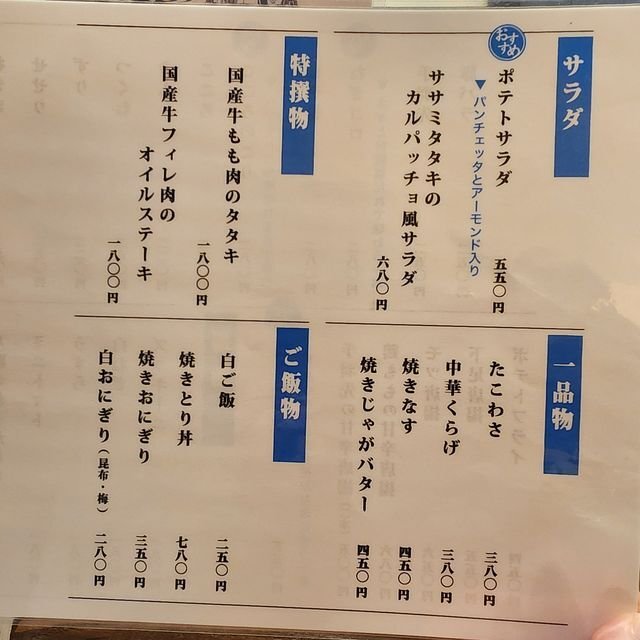 サラダ
おすすめ
ポテトサラダ 五五〇円
▼パンチェッタとアーモンド入り
ササミタタキの
カルパッチョ風サラダ 六八〇円
特撰物
国産牛もも肉のタタキ 一八〇〇円
国産牛フィレ肉の
オイルステーキ 一八〇〇円
一品物
たこわさ 三八〇円
中華くらげ 三八〇円
焼きなす 四五〇円
焼きじゃがバター 四五〇円
ご飯物
白ご飯 二五〇円
焼きとり丼 七八〇円
焼きおにぎり 三五〇円
白おにぎり(昆布・梅) 二八〇円